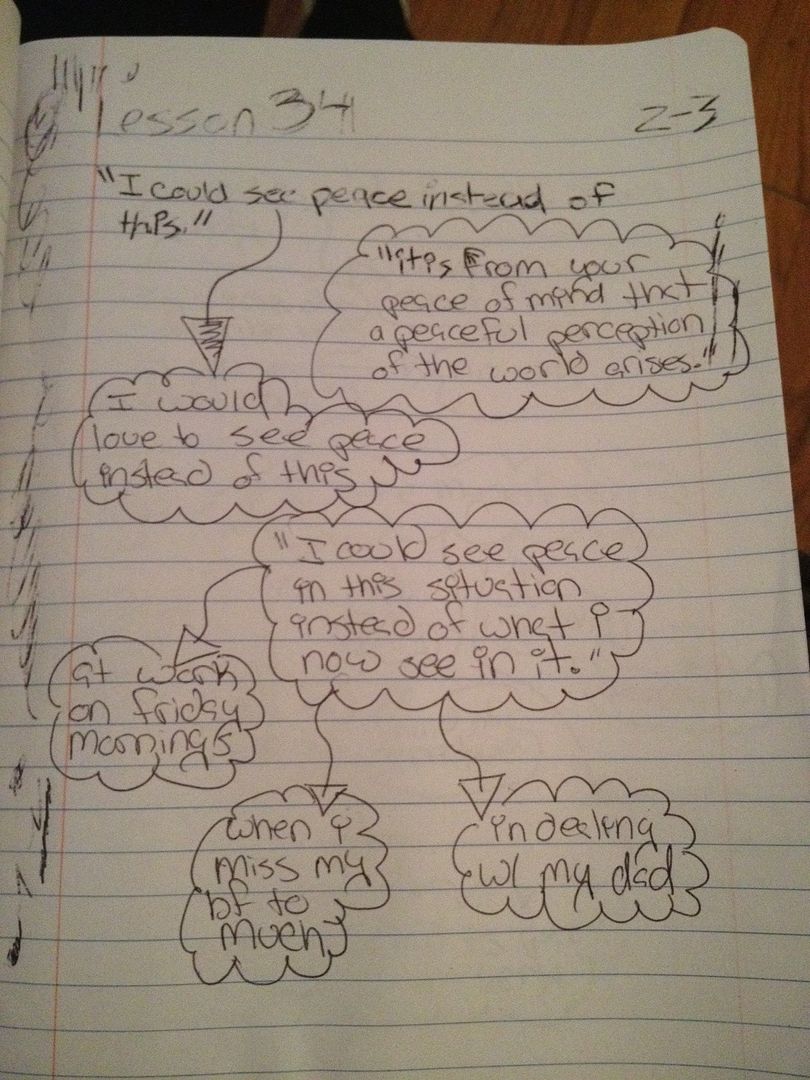 Lesson 34
2-3
"I could see peace instead of
this."
"it is from your
peace of mind that
a peaceful perception
of the world arises."
I would
love to see peace
instead of this
"I could see peace
in this situation
instead of what i
now see in it."
at work
on friday
mornings
when i
miss my
bf to
much
in dealing
w/ my dad